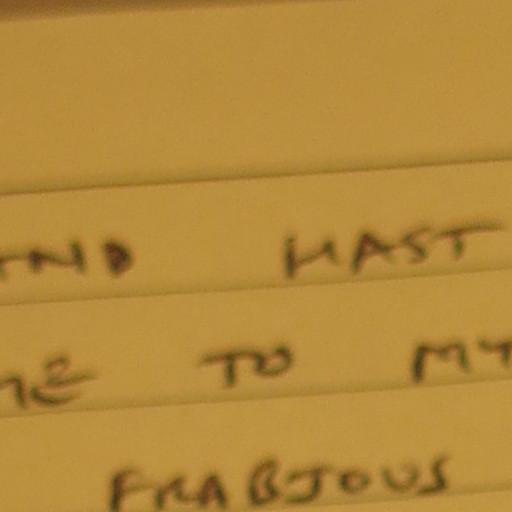 AND HAST
ME TO MY
FRABJOUS